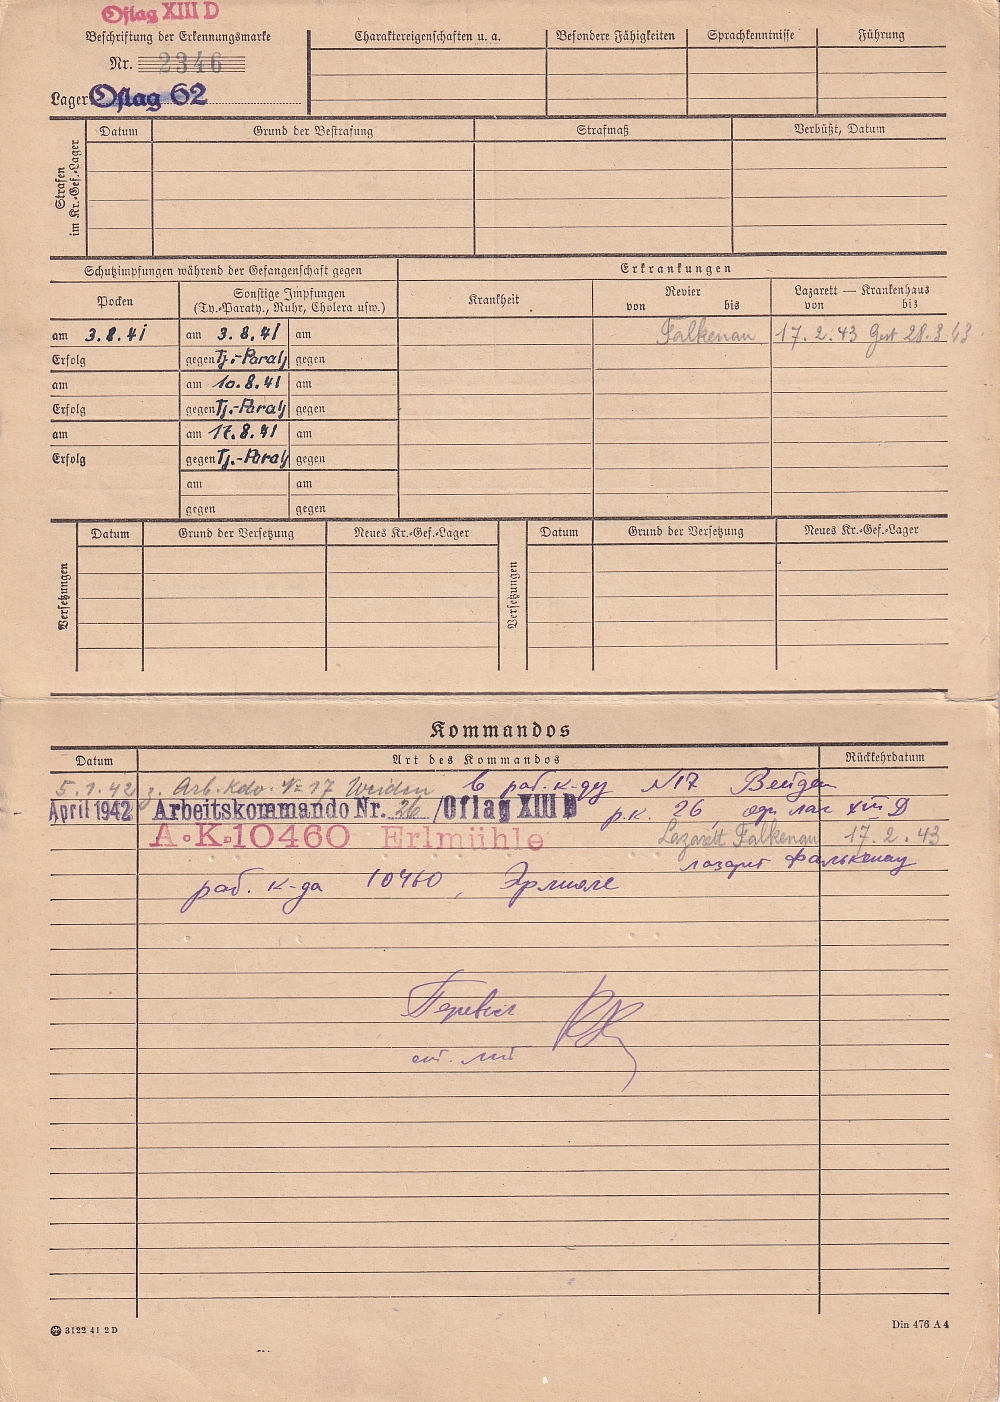 Oflag XIII D
Beschriftung der Erkennungsmarke
Nr. 2346
Lager Oflag 62
Charaktereigenschaften u. a. Besondere Fähigkeiten Sprachkenntnisse Führung
Strafen im Kr.-Gef.-Lager
Datum Grund der Bestrafung Strafmaß Verbüßt, Datum
Schutzimpfungen während der Gefangenschaft gegen Erkrankungen
Pocken Sonstige Impfungen Krankheit Revier Lazarett — Krankenhaus
(Ty.-Paraty., Ruhr, Cholera usw.) von bis von bis
am 3.8.41 am 3.8.41 am Falkenau 17.2.43 28.3.43
Erfolg gegen Ty.-Paraty gegen
am am 10.8.41 am
Erfolg gegen Ty.-Paraty gegen
am am 17.8.41 am
Erfolg gegen Ty.-Paraty gegen
am am
gegen gegen
Versetzungen Datum Grund der Versetzung Neues Kr.-Gef.-Lager Versetzungen Datum Grund der Versetzung Neues Kr.-Gef.-Lager
Kommandos
Datum Art des Kommandos Rückkehrdatum
5.1.42 z. Arb. Kdo. Nr 17 Weiden в раб. к-ду N17 Вейден
April 1942 Arbeitskommando Nr. 26 /Oflag XIII D р.к. 26, офлаг XIII D
A.K.10460 Erlmühle Lazarett Falkenau 17.2.43
лазарет Фалькенау
раб. к-да 10460, Эрлмюле
Перевел
3122 41 2 D
Din 476 A 4